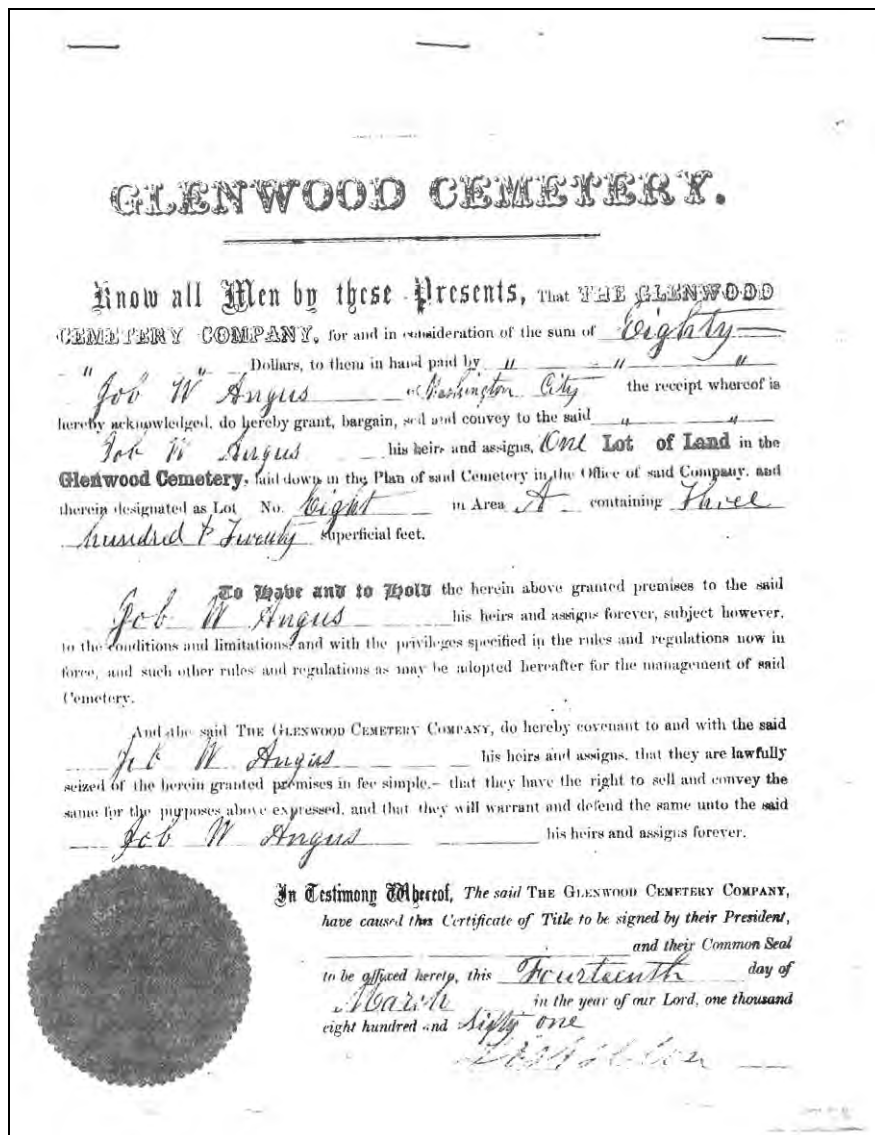 GLENWOOD CEMETERY.
Know all Men by these Presents, That THE GLENWOOD
CEMETERY COMPANY, for and in consideration of the sum of Eighty
" Dollars, to them in hand paid by " " "
Job W Angus of Washington City the receipt whereof is
hereby acknowledged, do hereby grant, bargain, sell and convey to the said " "
Job W Angus his heirs and assigns, One Lot of Land in the
Glenwood Cemetery, laid down in the Plan of said Cemetery in the Office of said Company, and
therein designated as Lot No. Eight in Area A containing Three
hundred & Twenty superficial feet.
To Have and to Hold the herein above granted premises to the said
Job W Angus his heirs and assigns forever, subject however,
to the conditions and limitations, and with the privileges specified in the rules and regulations now in
force, and such other rules and regulations as may be adopted hereafter for the management of said
Cemetery.
And the said THE GLENWOOD CEMETERY COMPANY, do hereby covenant to and with the said
Job W Angus his heirs and assigns, that they are lawfully
seized of the herein granted premises in fee simple,– that they have the right to sell and convey the
same for the purposes above expressed, and that they will warrant and defend the same unto the said
Job W Angus his heirs and assigns forever.
In Testimony Whereof, The said THE GLENWOOD CEMETERY COMPANY,
have caused this Certificate of Title to be signed by their President,
and their Common Seal
to be affixed hereto, this Fourteenth day of
March in the year of our Lord, one thousand
eight hundred and Sixty one